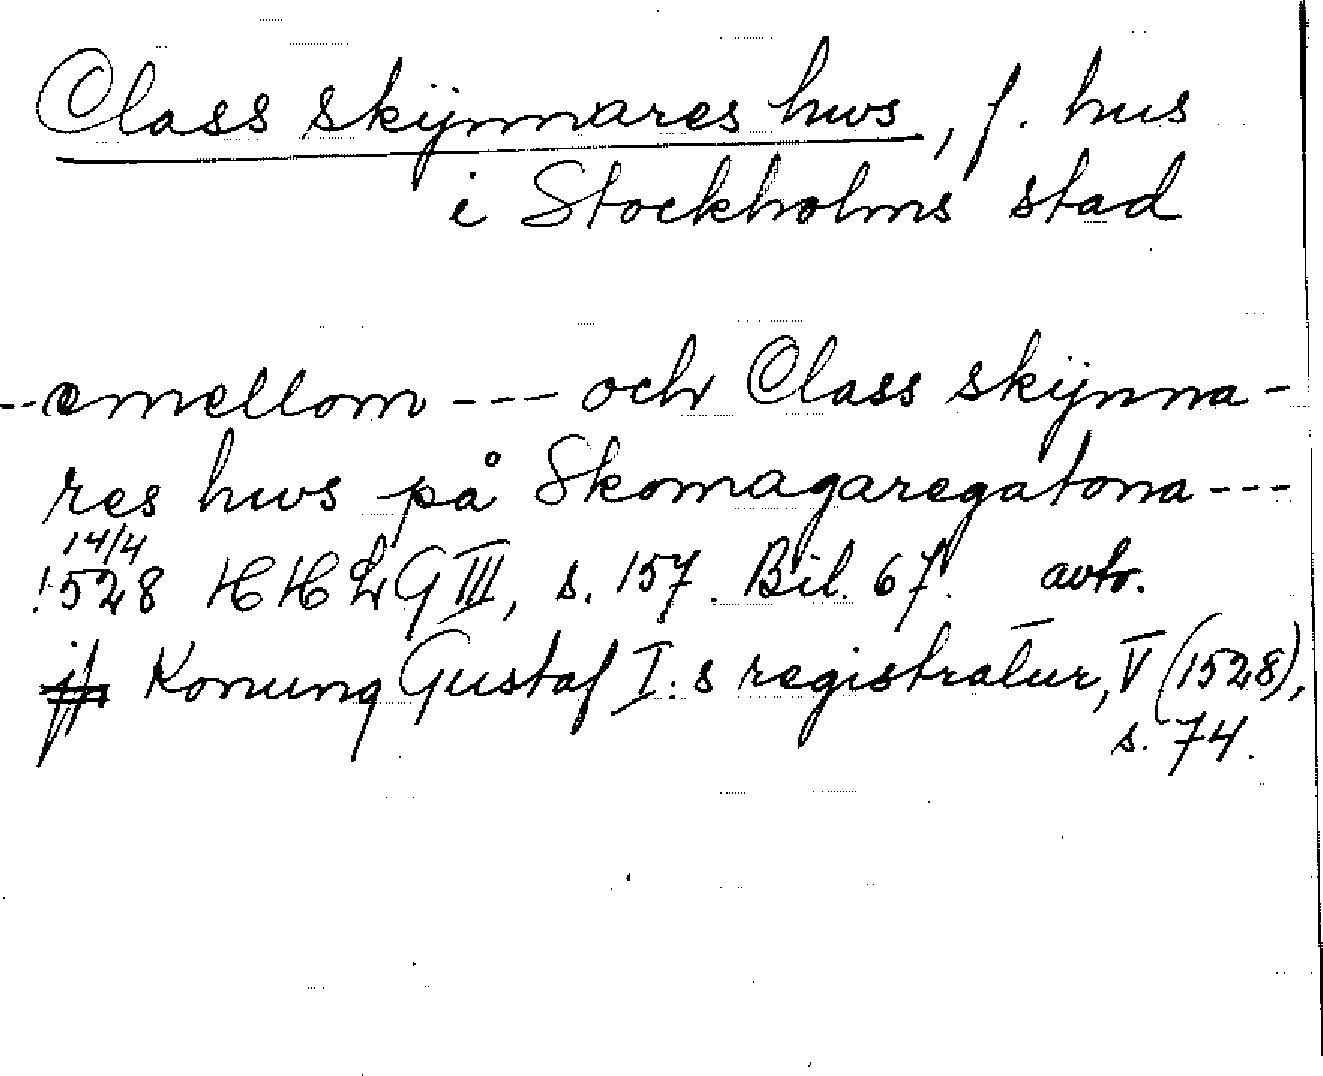 Class skijnnares hws, f. hus
i Stockholms stad
--emellom --- och Class skijnna-
res hws på Skomagaregatona ---
14/4
1528 HHLG III, s. 157. Bil. 67. avtr.
Konung Gustaf I:s registratur, V (1528),
s. 74.